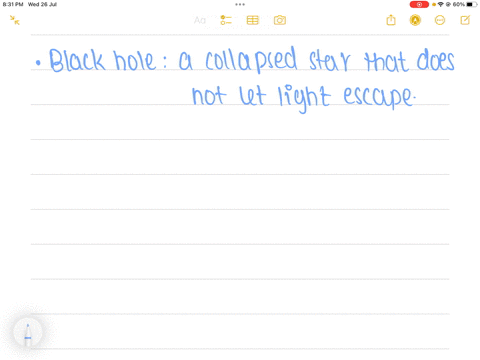 8:31 PM Wed 26 Jul
60%
Aa
• Black hole : a collapsed star that does
not let light escape.